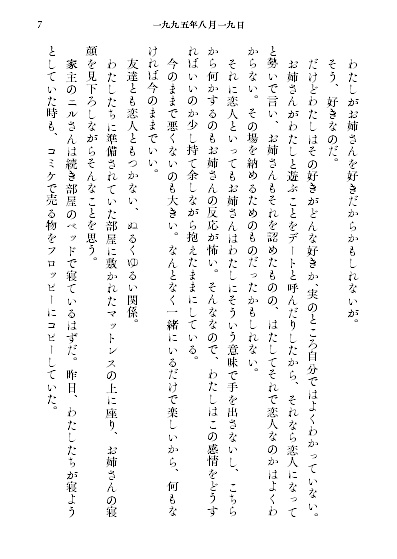 7
一九九五年八月一九日
わたしがお姉さんを好きだからかもしれないが。
そう、好きなのだ。
だけどわたしはその好きがどんな好きか、実のところ自分ではよくわかっていない。
お姉さんがわたしと遊ぶことをデートと呼んだりしたから、それなら恋人になって
と勢いで言い、お姉さんもそれを認めたものの、はたしてそれで恋人なのかはよくわ
からない。その場を納めるためのものだったかもしれない。
それに恋人といってもお姉さんはわたしにそういう意味で手を出さないし、こちら
から何かするのもお姉さんの反応が怖い。そんななので、わたしはこの感情をどうす
ればいいのか少し持て余しながら抱えたままにしている。
今のままで悪くないのも大きい。なんとなく一緒にいるだけで楽しいから、何もな
ければ今のままでいい。
友達とも恋人ともつかない、ぬるくゆるい関係。
わたしたちに準備されていた部屋に敷かれたマットレスの上に座り、お姉さんの寝
顔を見下ろしながらそんなことを思う。
家主のニルさんは続き部屋のベッドで寝ているはずだ。昨日、わたしたちが寝よう
としていた時も、コミケで売る物をフロッピーにコピーしていた。